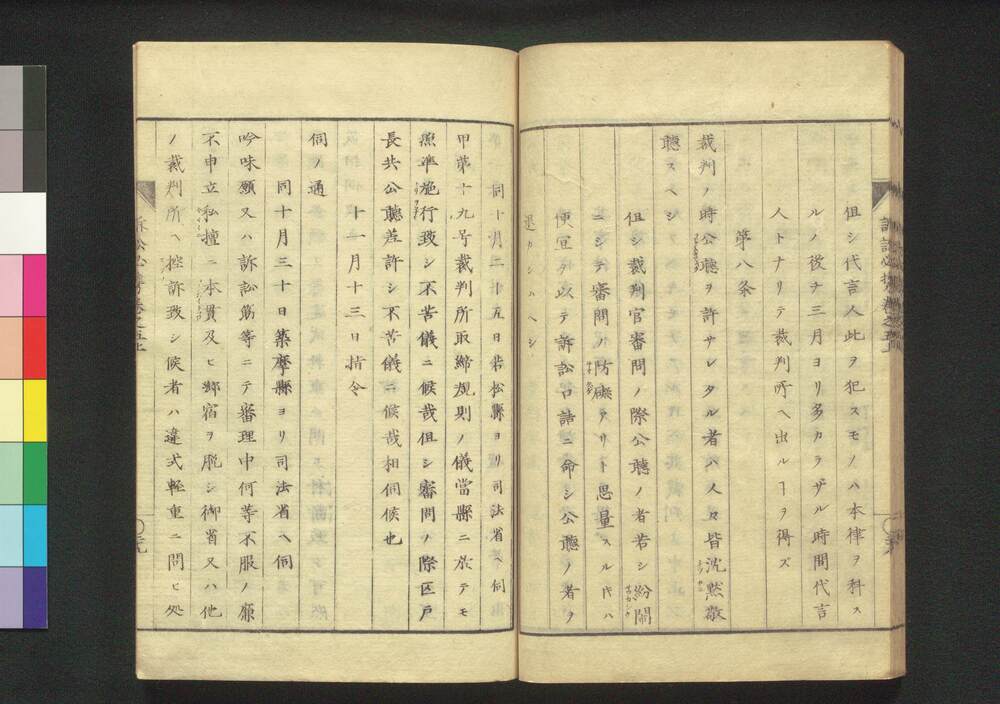 但シ代言人此ヲ犯スモノハ本律ヲ科ス
ルノ後チ三月ヨリ多カラザル時間代言
人トナリテ裁判所ヘ出ルヿヲ得ズ
第八条
裁判ノ時公聴ヲ許サレタル者ハ人々皆沈黙敬
聴スヘシ
但シ裁判官審問ノ際公聴ノ者若シ紛鬧
ニシテ審問ノ防礙アリト思量スル片ハ
便宜ヲ以テ訴訟口詰ニ命シ公聴ノ者ヲ
退カシムヘシ
同十月二十五日若松縣ヨリ司法省ヘ伺
甲第十九号裁判所取締規則ノ儀當縣ニ於テモ
照準施行致シ不苦儀ニ候哉但シ審問ノ際区戸
長共公聴差許シ不苦儀ニ候哉相伺候也
十一月十三日指令
伺ノ通
同十月三十日築摩縣ヨリ司法省ヘ伺
吟味願又ハ訴訟筋等ニテ審理中何等不服ノ廉
不申立私擅ニ本貫及ヒ郷宿ヲ脱シ御省又ハ他
ノ裁判所ヘ控訴致シ候者ハ違式軽重ニ問ヒ処